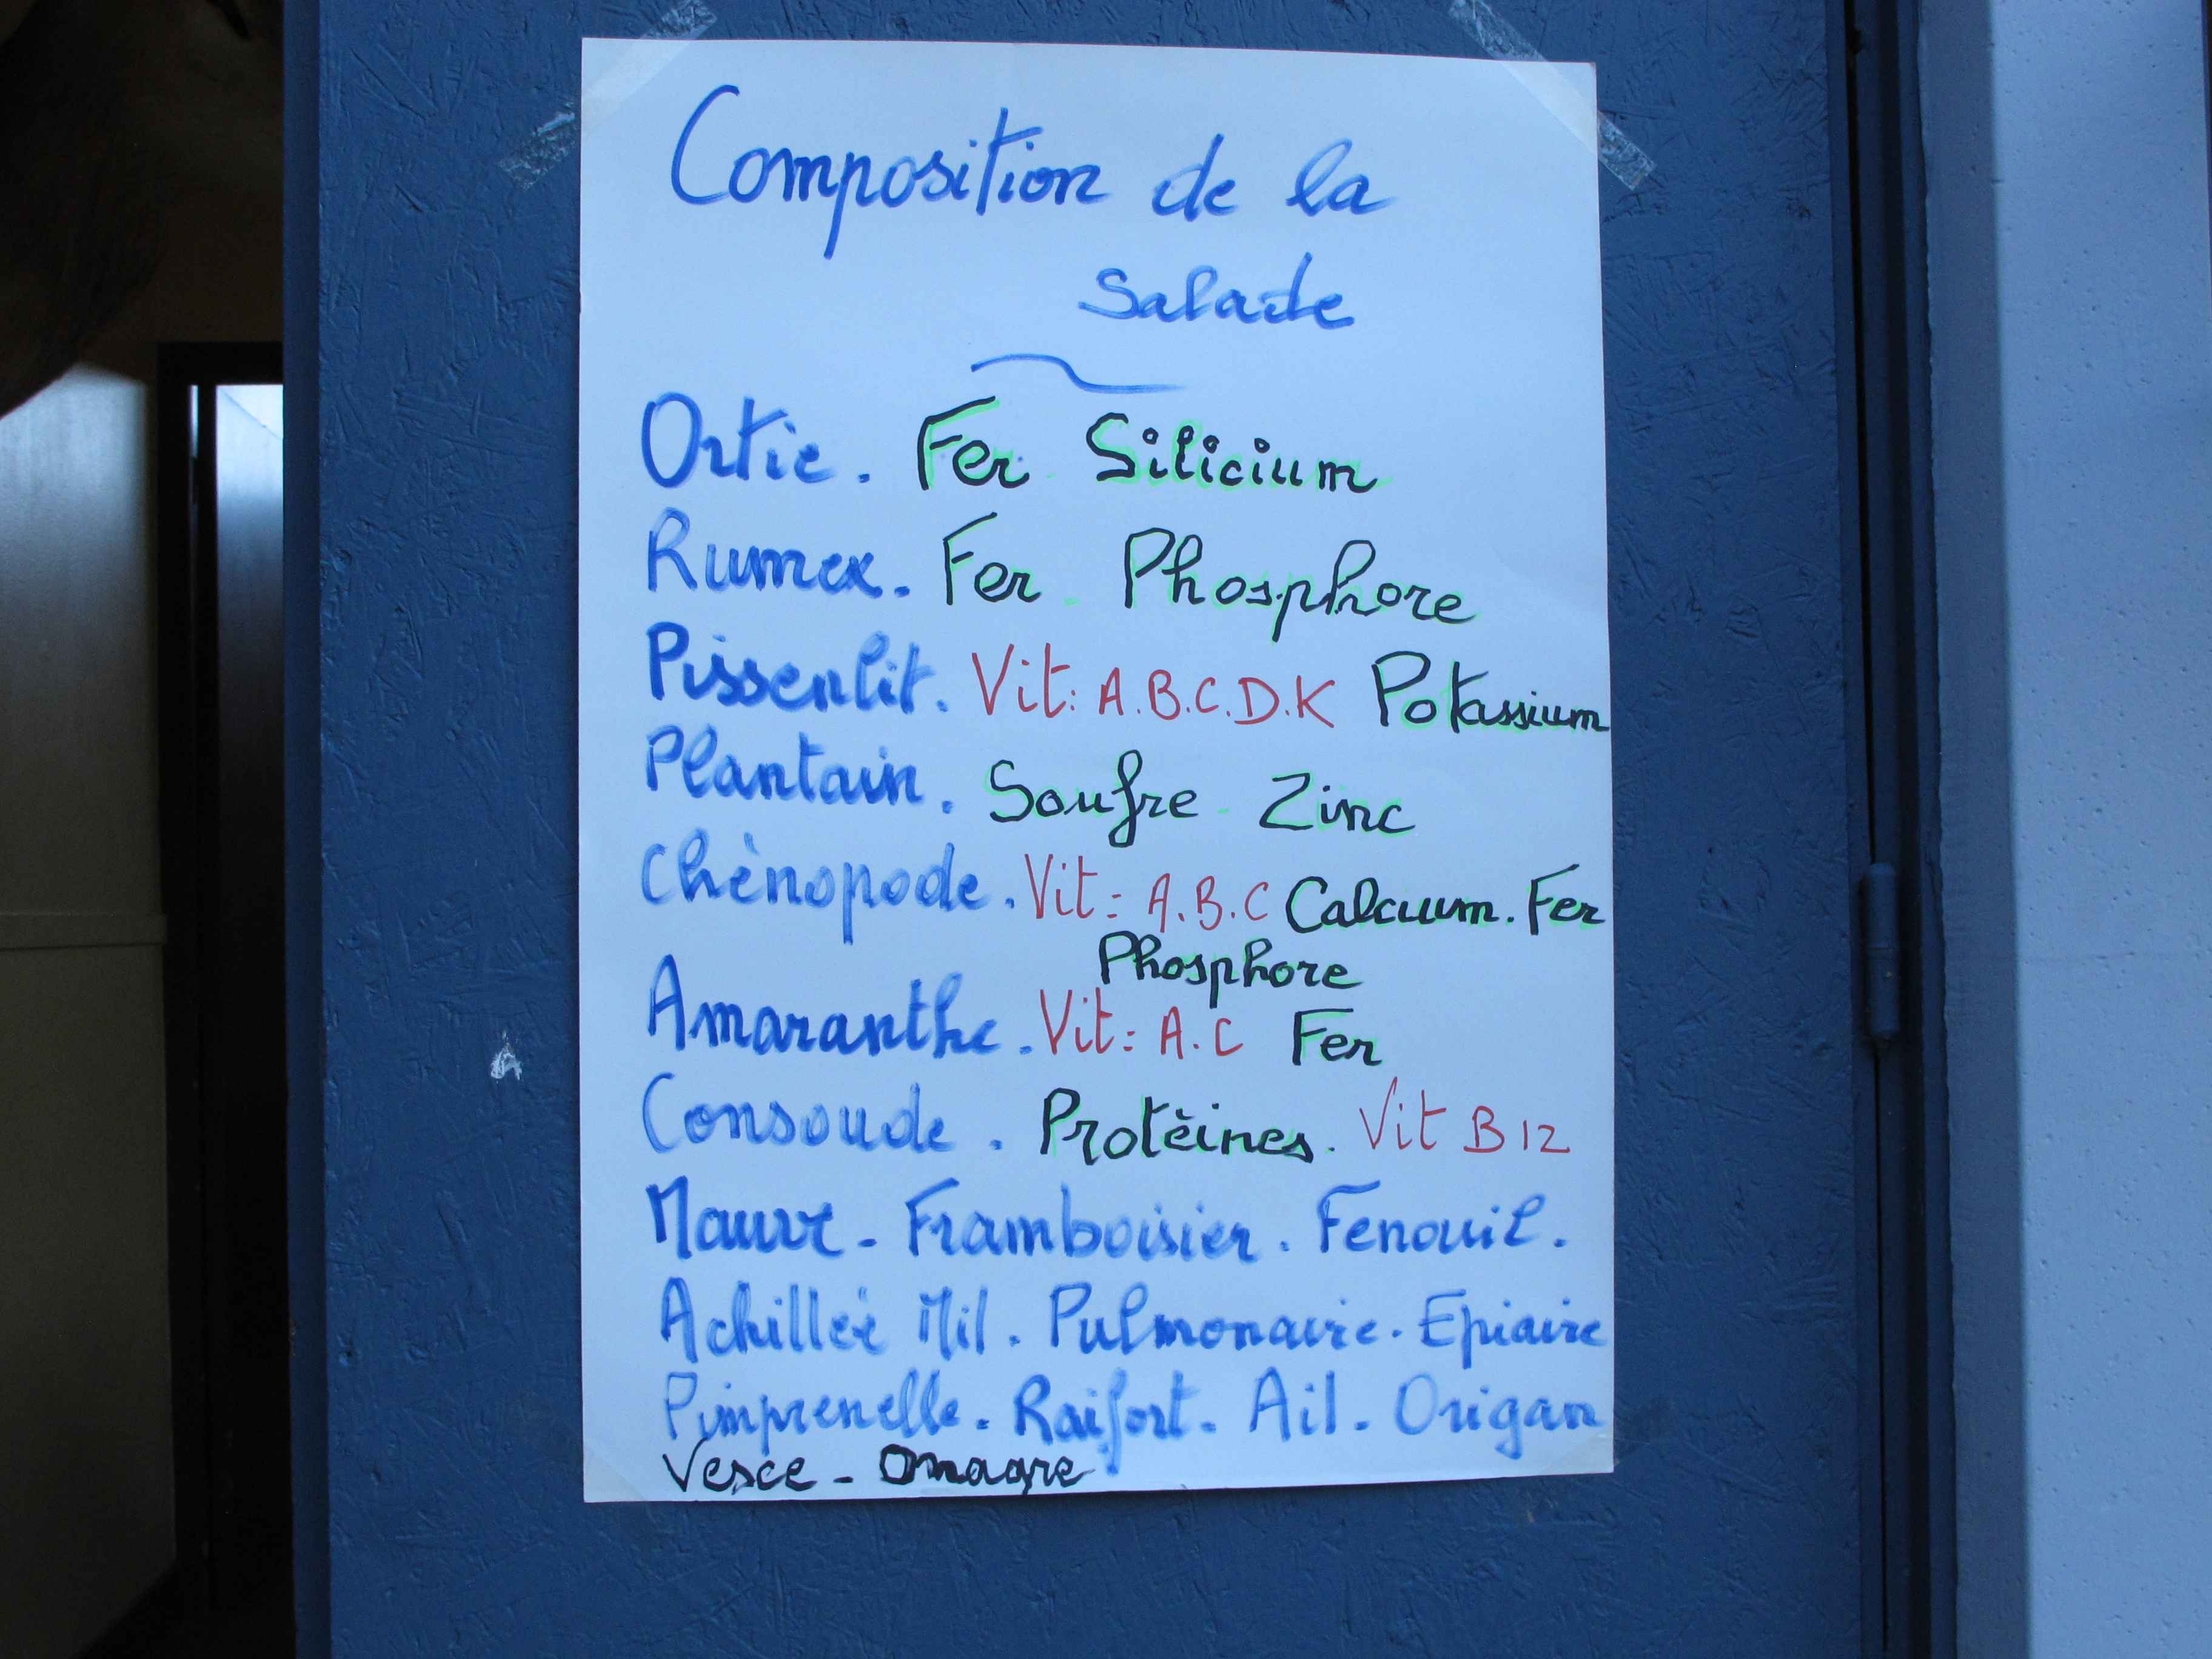 Composition de la
Salade
Ortie. Fer Silicium
Rumex. Fer. Phosphore
Pissenlit. Vit: A.B.C.D.K Potassium
Plantain. Soufre - Zinc
Chènopode. Vit: A.B.C Calcium. Fer
Phosphore
Amaranthe. Vit: A.C Fer
Consoude. Protèines. Vit B12
Mauve - Framboisier. Fenouil.
Achillée Mil. Pulmonaire. Epiaire
Pimprenelle. Raifort. Ail. Origan
Vesce - Onagre